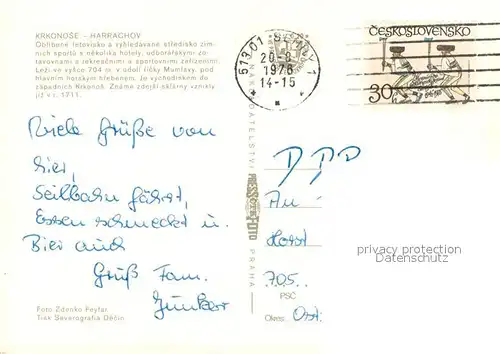 KRKONOŠE – HARRACHOV
Oblíbené letovisko a vyhledávané středisko zim-
ních sportů s několika hotely, odborářskými zo-
tavovnami a rekreačními a sportovními zařízeními.
Leží ve výšce 704 m v údolí říčky Mumlavy, pod
hlavním horským hřebenem. Je východiskem do
západních Krkonoš. Známé zdejší sklárny vznikly
již v r. 1711.
Viele Grüße von
hier,
Seilbahn fährt,
Essen schmeckt u.
Bier auch
Gruß Fam.
Junker
Foto Zdenko Feyfar
Tisk Severografia Děčín
VYDAVATELSTVÍ PRESSFOTO PRAHA
513 01 1
20-8
1978
14-15
ČESKOSLOVENSKO
30
DDR
An
Horst
705.
PSČ
Okres
privacy protection
Datenschutz